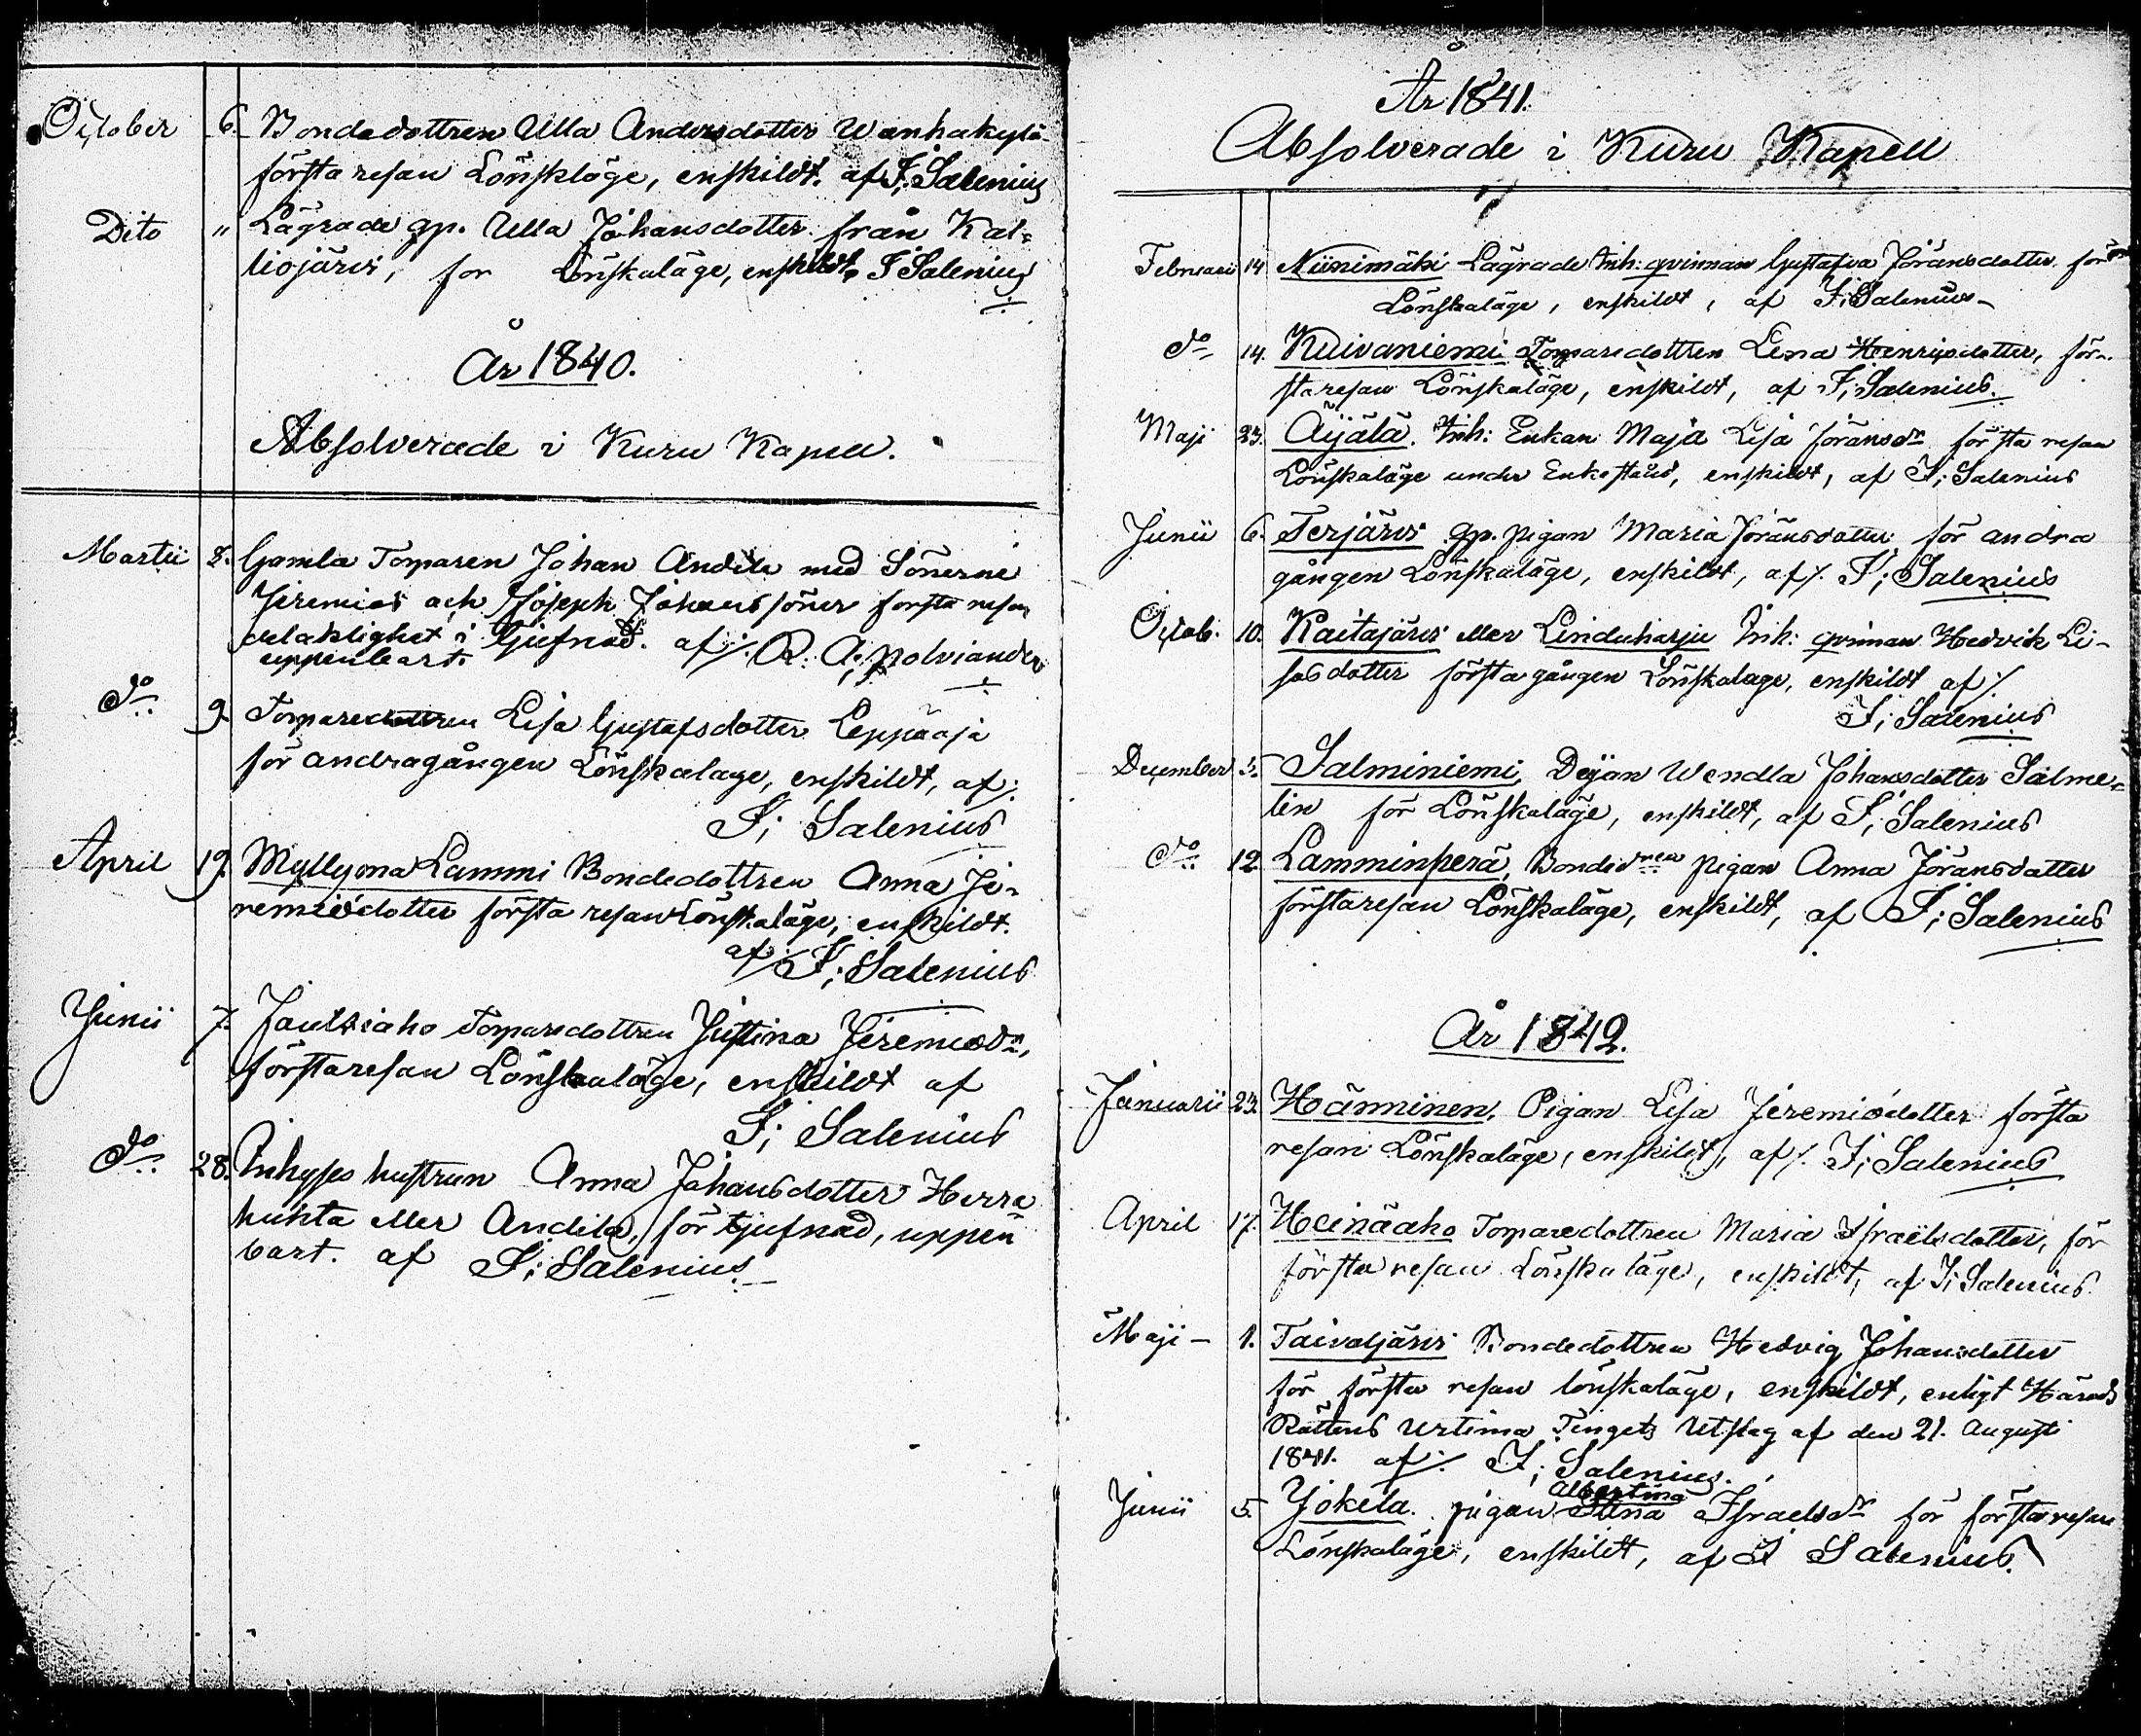 October 6. Bondedottren Ulla Andersdotter Wanhakylä
första resan Lönskläge, enskildt. af F; Salenius
Dito " Lägrade qp. Ulla Johansdotter från Kal-
liojärvi, för Lönskaläge, enskildt F Salenius
År 1840.
Absolverade i Kuru Kapell.
Martii 8. Gamla Torparen Johan Andila med Sönerne
Jeremias och Joseph Johanssöner första resan
delaktighet i tjufnad. af ./. R. A; Polviander
uppenbart.
do 9. Torparedottren Lisa Gustafsdotter Leppäoja
för andra gången Lönskalage, enskildt, af ./.
F; Salenius
April 19. Myllyona Lammi Bondedottren Anna Je-
remiædotter första resan Lönskaläge, enskildt.
af F; Salenius
Junii 7. Jautsiaho Torparedottren Justina Jeremiædr,
första resan Lönskaläge, enskildt af
F; Salenius
do 28. Inhyses hustrun Anna Johansdotter Herra
huhta eller Andila, för tjufnad, uppen
bart. af F; Salenius
År 1841.
Absolverade i Kuru Kapell
Februarii 14 Niinimäki Lägrade Inh: qvinnan Gustafva Jöransdotter för
Lönskaläge, enskildt, af F; Salenius
do 14. Kuivaniemi Torparedottren Lena Henricsdotter, för-
sta resan Lönskaläge, enskildt, af F; Salenius.
Maji 23. Äijälä. Inh: Enkan Maja Lisa Jöransdr första resan
Lönskaläge under Enkestånd, enskildt, af F; Salenius
Junii 6. Terjärvi qp. pigan Maria Jöransdotter för andra
gången Lönskaläge, enskildt, af ./. F; Salenius
Octob. 10. Kaitajärvi eller Linduharju Inh: qvinnan Hedvik Li-
sasdotter första gången Lönskalage, enskildt af ./.
F; Salenius
December 5. Salminiemi, Dejan Wendla Johansdotter Salme-
lin för Lönskaläge, enskildt, af F; Salenius
do 12. Lamminperä, pigan Anna Jöransdotter
första resan Lönskaläge, enskildt, af F; Salenius
År 1842.
Januarii 23. Hänninen, Pigan Lisa Jeremiædotter första
resan Lönskaläge, enskildt, af ./. F; Salenius
April 17. Heinäaho Torparedottren Maria Israelsdotter, för
första resan Lönskaläge, enskildt, af F; Salenius
Maji - 1. Taivaljärvi Bondedottren Hedvig Johansdotter
för första resan lönskaläge, enskildt, enligt Härads
Rättens Urtima Tingets Utslag af den 21. Augusti
1841. af ./. F; Salenius.
Albertina
Junii 5. Jokela. pigan Stina Israelsdr för första resan
Lönskaläge, enskildt, af F Salenius.